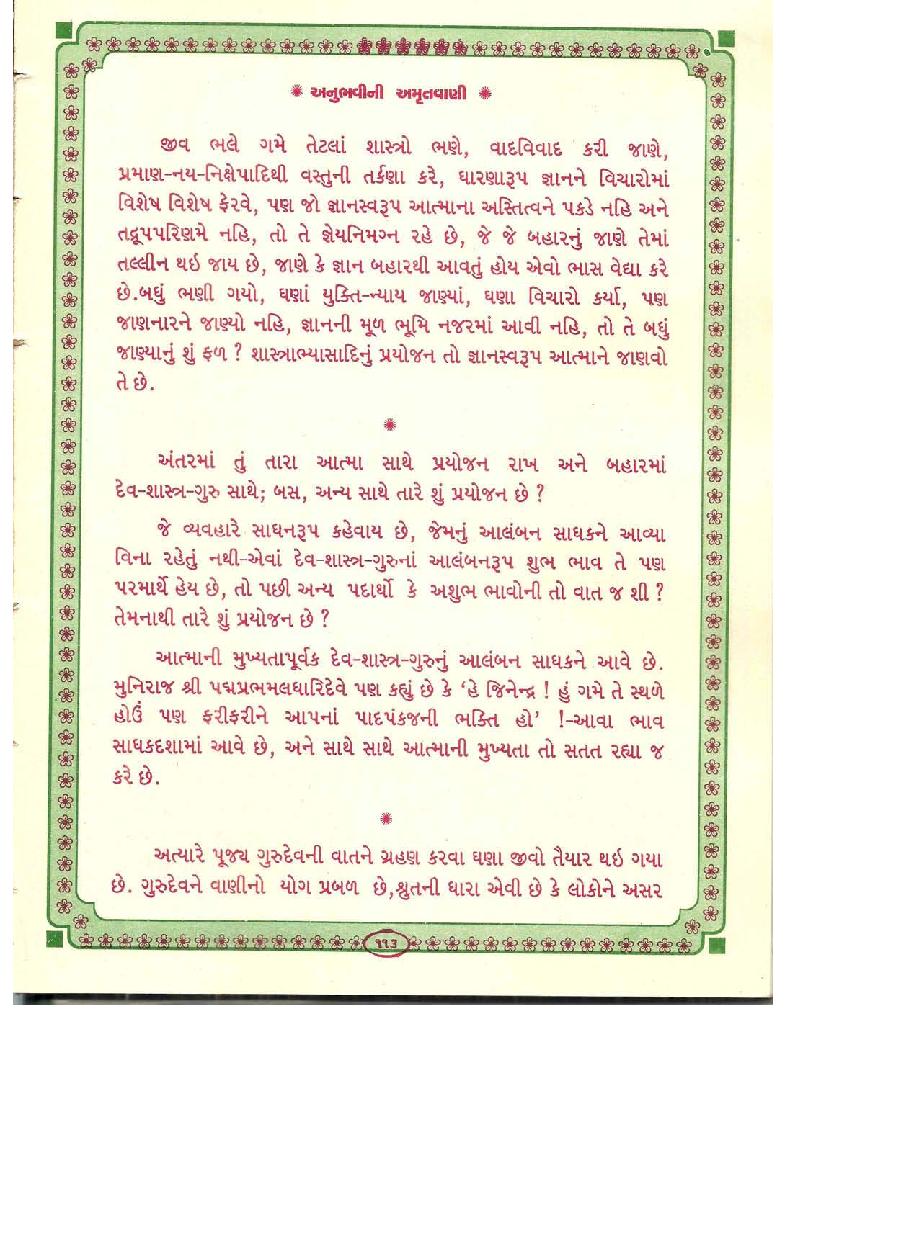 અનુભવીની અમૃતવાણી
જીવ ભલે ગમે તેટલાં શાસ્ત્રો ભણે, વાદવિવાદ કરી જાણે,
પ્રમાણ-નય-નિક્ષેપાદિથી વસ્તુની તર્કણા કરે, ધારણારૂપ જ્ઞાનને વિચારોમાં
વિશેષ વિશેષ ફેરવે, પણ જો જ્ઞાનસ્વરૂપ આત્માના અસ્તિત્વને પકડે નહિ અને
તદ્રૂપપરિણમે નહિ, તો તે જ્ઞેયનિમગ્ન રહે છે, જે જે બહારનું જાણે તેમાં
તલ્લીન થઇ જાય છે, જાણે કે જ્ઞાન બહારથી આવતું હોય એવો ભાસ વેદ્યા કરે
છે.બધું ભણી ગયો, ઘણાં યુક્તિ-ન્યાય જાણ્યાં, ઘણા વિચારો કર્યા, પણ
જાણનારને જાણ્યો નહિ, જ્ઞાનની મૂળ ભૂમિ નજરમાં આવી નહિ, તો તે બધું
જાણ્યાનું શું ફળ ? શાસ્ત્રાભ્યાસાદિનું પ્રયોજન તો જ્ઞાનસ્વરૂપ આત્માને જાણવો
તે છે.
અંતરમાં તું તારા આત્મા સાથે પ્રયોજન રાખ અને બહારમાં
દેવ-શાસ્ત્ર-ગુરુ સાથે; બસ, અન્ય સાથે તારે શું પ્રયોજન છે ?
જે વ્યવહારે સાધનરૂપ કહેવાય છે, જેમનું આલંબન સાધકને આવ્યા
વિના રહેતું નથી-એવાં દેવ-શાસ્ત્ર-ગુરુનાં આલંબનરૂપ શુભ ભાવ તે પણ
પરમાર્થે હેય છે, તો પછી અન્ય પદાર્થો કે અશુભ ભાવોની તો વાત જ શી ?
તેમનાથી તારે શું પ્રયોજન છે ?
આત્માની મુખ્યતાપૂર્વક દેવ-શાસ્ત્ર-ગુરુનું આલંબન સાધકને આવે છે.
મુનિરાજ શ્રી પદ્મપ્રભમલધારિદેવે પણ કહ્યું છે કે ‘હે જિનેન્દ્ર ! હું ગમે તે સ્થળે
હોઉં પણ ફરીફરીને આપનાં પાદપંકજની ભક્તિ હો’ !-આવા ભાવ
સાધકદશામાં આવે છે, અને સાથે સાથે આત્માની મુખ્યતા તો સતત રહ્યા જ
કરે છે.
અત્યારે પૂજ્ય ગુરુદેવની વાતને ગ્રહણ કરવા ઘણા જીવો તૈયાર થઇ ગયા
છે. ગુરુદેવને વાણીનો યોગ પ્રબળ છે,શ્રુતની ધારા એવી છે કે લોકોને અસર
૧૧૩